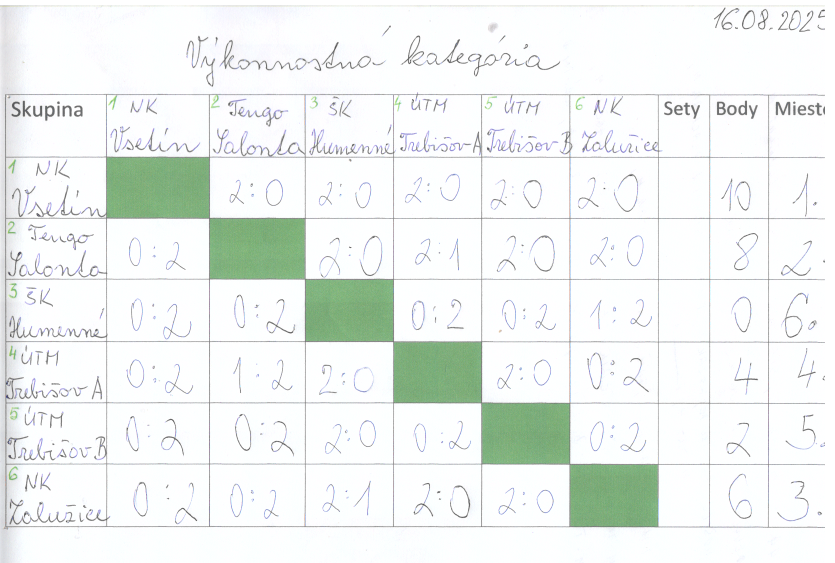 16.08.2025
Výkonnostná kategória
Skupina 1 NK Vsetín 2 Tengo Salonta 3 ŠK Humenné 4 ÚTM Trebišov A 5 ÚTM Trebišov B 6 NK Zalužice Sety Body Miesto
1 NK Vsetín 2:0 2:0 2:0 2:0 2:0 10 1.
2 Tengo Salonta 0:2 2:0 2:1 2:0 2:0 8 2.
3 ŠK Humenné 0:2 0:2 0:2 0:2 1:2 0 6.
4 ÚTM Trebišov A 0:2 1:2 2:0 2:0 0:2 4 4.
5 ÚTM Trebišov B 0:2 0:2 2:0 0:2 0:2 2 5.
6 NK Zalužice 0:2 0:2 2:1 2:0 2:0 6 3.